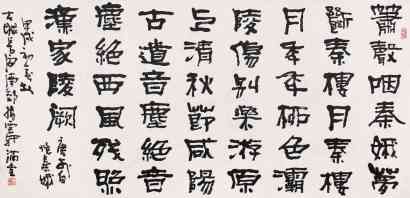 簫聲咽秦娥夢
斷秦樓月秦樓
月年年柳色灞
陵傷別樂游原
上清秋節咸陽
古道音塵絕音
塵絕西風殘照
漢家陵闕
唐李白
憶秦娥